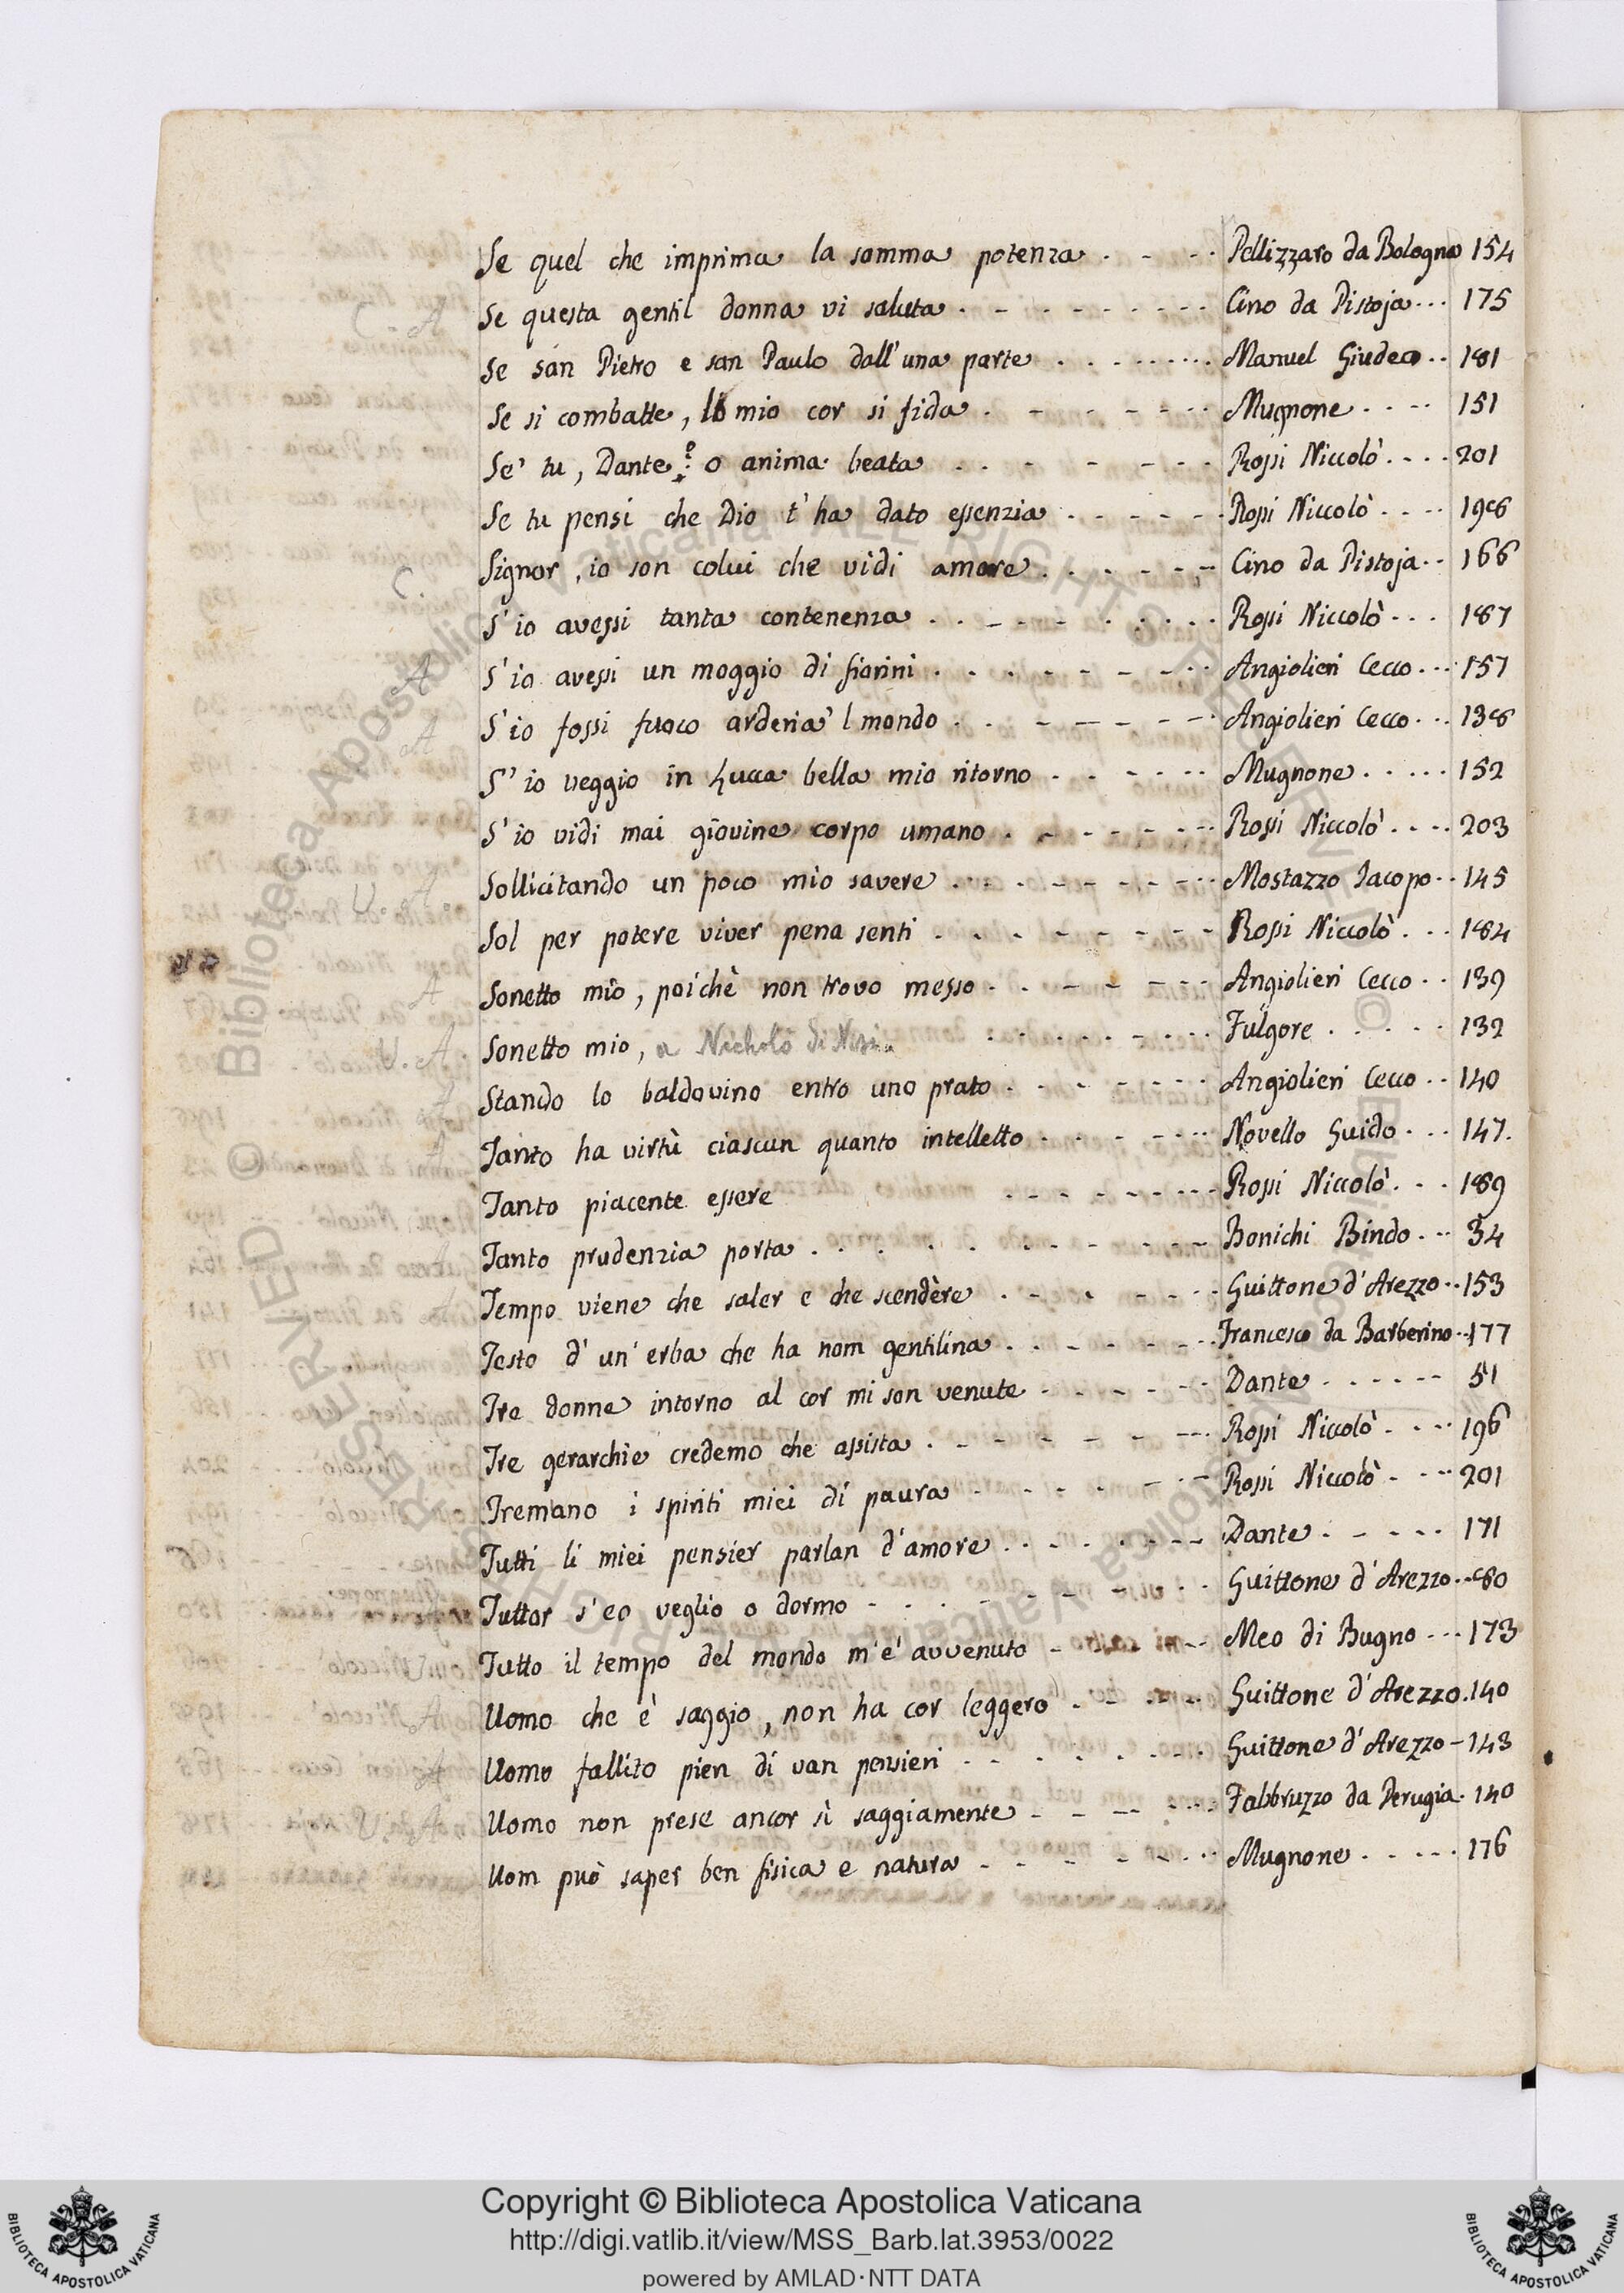 Se quel che imprima la somma potenza . - - . Pellizzaro da Bologna 154
C. A Se questa gentil donna vi saluta . - - . - - - - - Cino da Pistoja... 175
Se san Pietro e san Paulo dall'una parte . . . - . . . . Manuel Giudeo.. 181
Se si combatte, lo mio cor si fida . - - - - - - . Mugnone. . . . 151
Se' tu, Dante? o anima beata . . - - - - - Rossi Niccolò. . . . 201
Se tu pensi che Dio t'ha dato essenzia . - - - - - Rossi Niccolò . . . . 198
C. Signor, io son colui che vidi amore . . - - - - Cino da Pistoja.. 166
S'io avessi tanta contenenza . . - - - . . . . Rossi Niccolò. . . 187
A S'io avessi un moggio di fiorini . - - - - - - . . Angiolieri Cecco... 157
A S'io fossi fuoco arderia'l mondo . . - - - - - . Angiolieri Cecco... 138
S'io veggio in Lucca bella mio ritorno . - - - . . Mugnone. . . . . 152
S'io vidi mai giovine corpo umano . - - - - - . . Rossi Niccolò. . . . 203
V. A. Sollicitando un poco mio savere . . . - - - - . . Mostazzo Jacopo.. 145
Sol per potere viver pena senti . . - - - - - - Rossi Niccolò. . . 184
A Sonetto mio, poichè non trovo messo . . - - - - - Angiolieri Cecco. . 139
V. A. Sonetto mio, a Nicholò di Nisi . . . . . - . . . Fulgore . . . . . 132
A Stando lo baldovino entro uno prato . - - - - . . Angiolieri Cecco.. 140
A Tanto ha virtù ciascun quanto intelletto . - - - . . . Novello Guido. . . 147.
Tanto piacente essere . - - - - - . . . Rossi Niccolò. . . 189
Tanto prudenzia porta . . . . . - - - - - - Bonichi Bindo. .. 34
A Tempo viene che saler e che scendère . - . - - . . Guittone d'Arezzo.. 153
Testo d'un'erba che ha nom gentilina . . - - - - . Francesco da Barberino.. 177
Tre donne intorno al cor mi son venute . - - - - . . Dante . . . . - - 51
Tre gerarchie credemo che assista . - - - - - - . . Rossi Niccolò . . . . 196
Tremano i spiriti miei di paura . - - . - - . - Rossi Niccolò . - . . 201
Tutti li miei pensier parlan d'amore . . - - . - - - Dante. - - . . . 171
Tuttor s'eo veglio o dormo - . . . - - - - . . Guittone d'Arezzo.. 80
Tutto il tempo del mondo m'è avvenuto - - - - - . Meo di Bugno ... 173
A Uomo che è saggio, non ha cor leggero . - - - . . Guittone d'Arezzo. 140
A Uomo fallito pien di van pensieri - - - . . - . . . Guittone d'Arezzo - 143
V. A Uomo non prese ancor sì saggiamente - - - - . . . Fabbruzzo da Perugia. 140
Uom può saper ben fisica e natura - - - - - - . . Mugnone. . . . . 176
© Biblioteca Apostolica Vaticana ALL RIGHTS RESERVED
Copyright © Biblioteca Apostolica Vaticana
http://digi.vatlib.it/view/MSS_Barb.lat.3953/0022
powered by AMLAD·NTT DATA
BIBLIOTECA APOSTOLICA VATICANA
BIBLIOTECA APOSTOLICA VATICANA